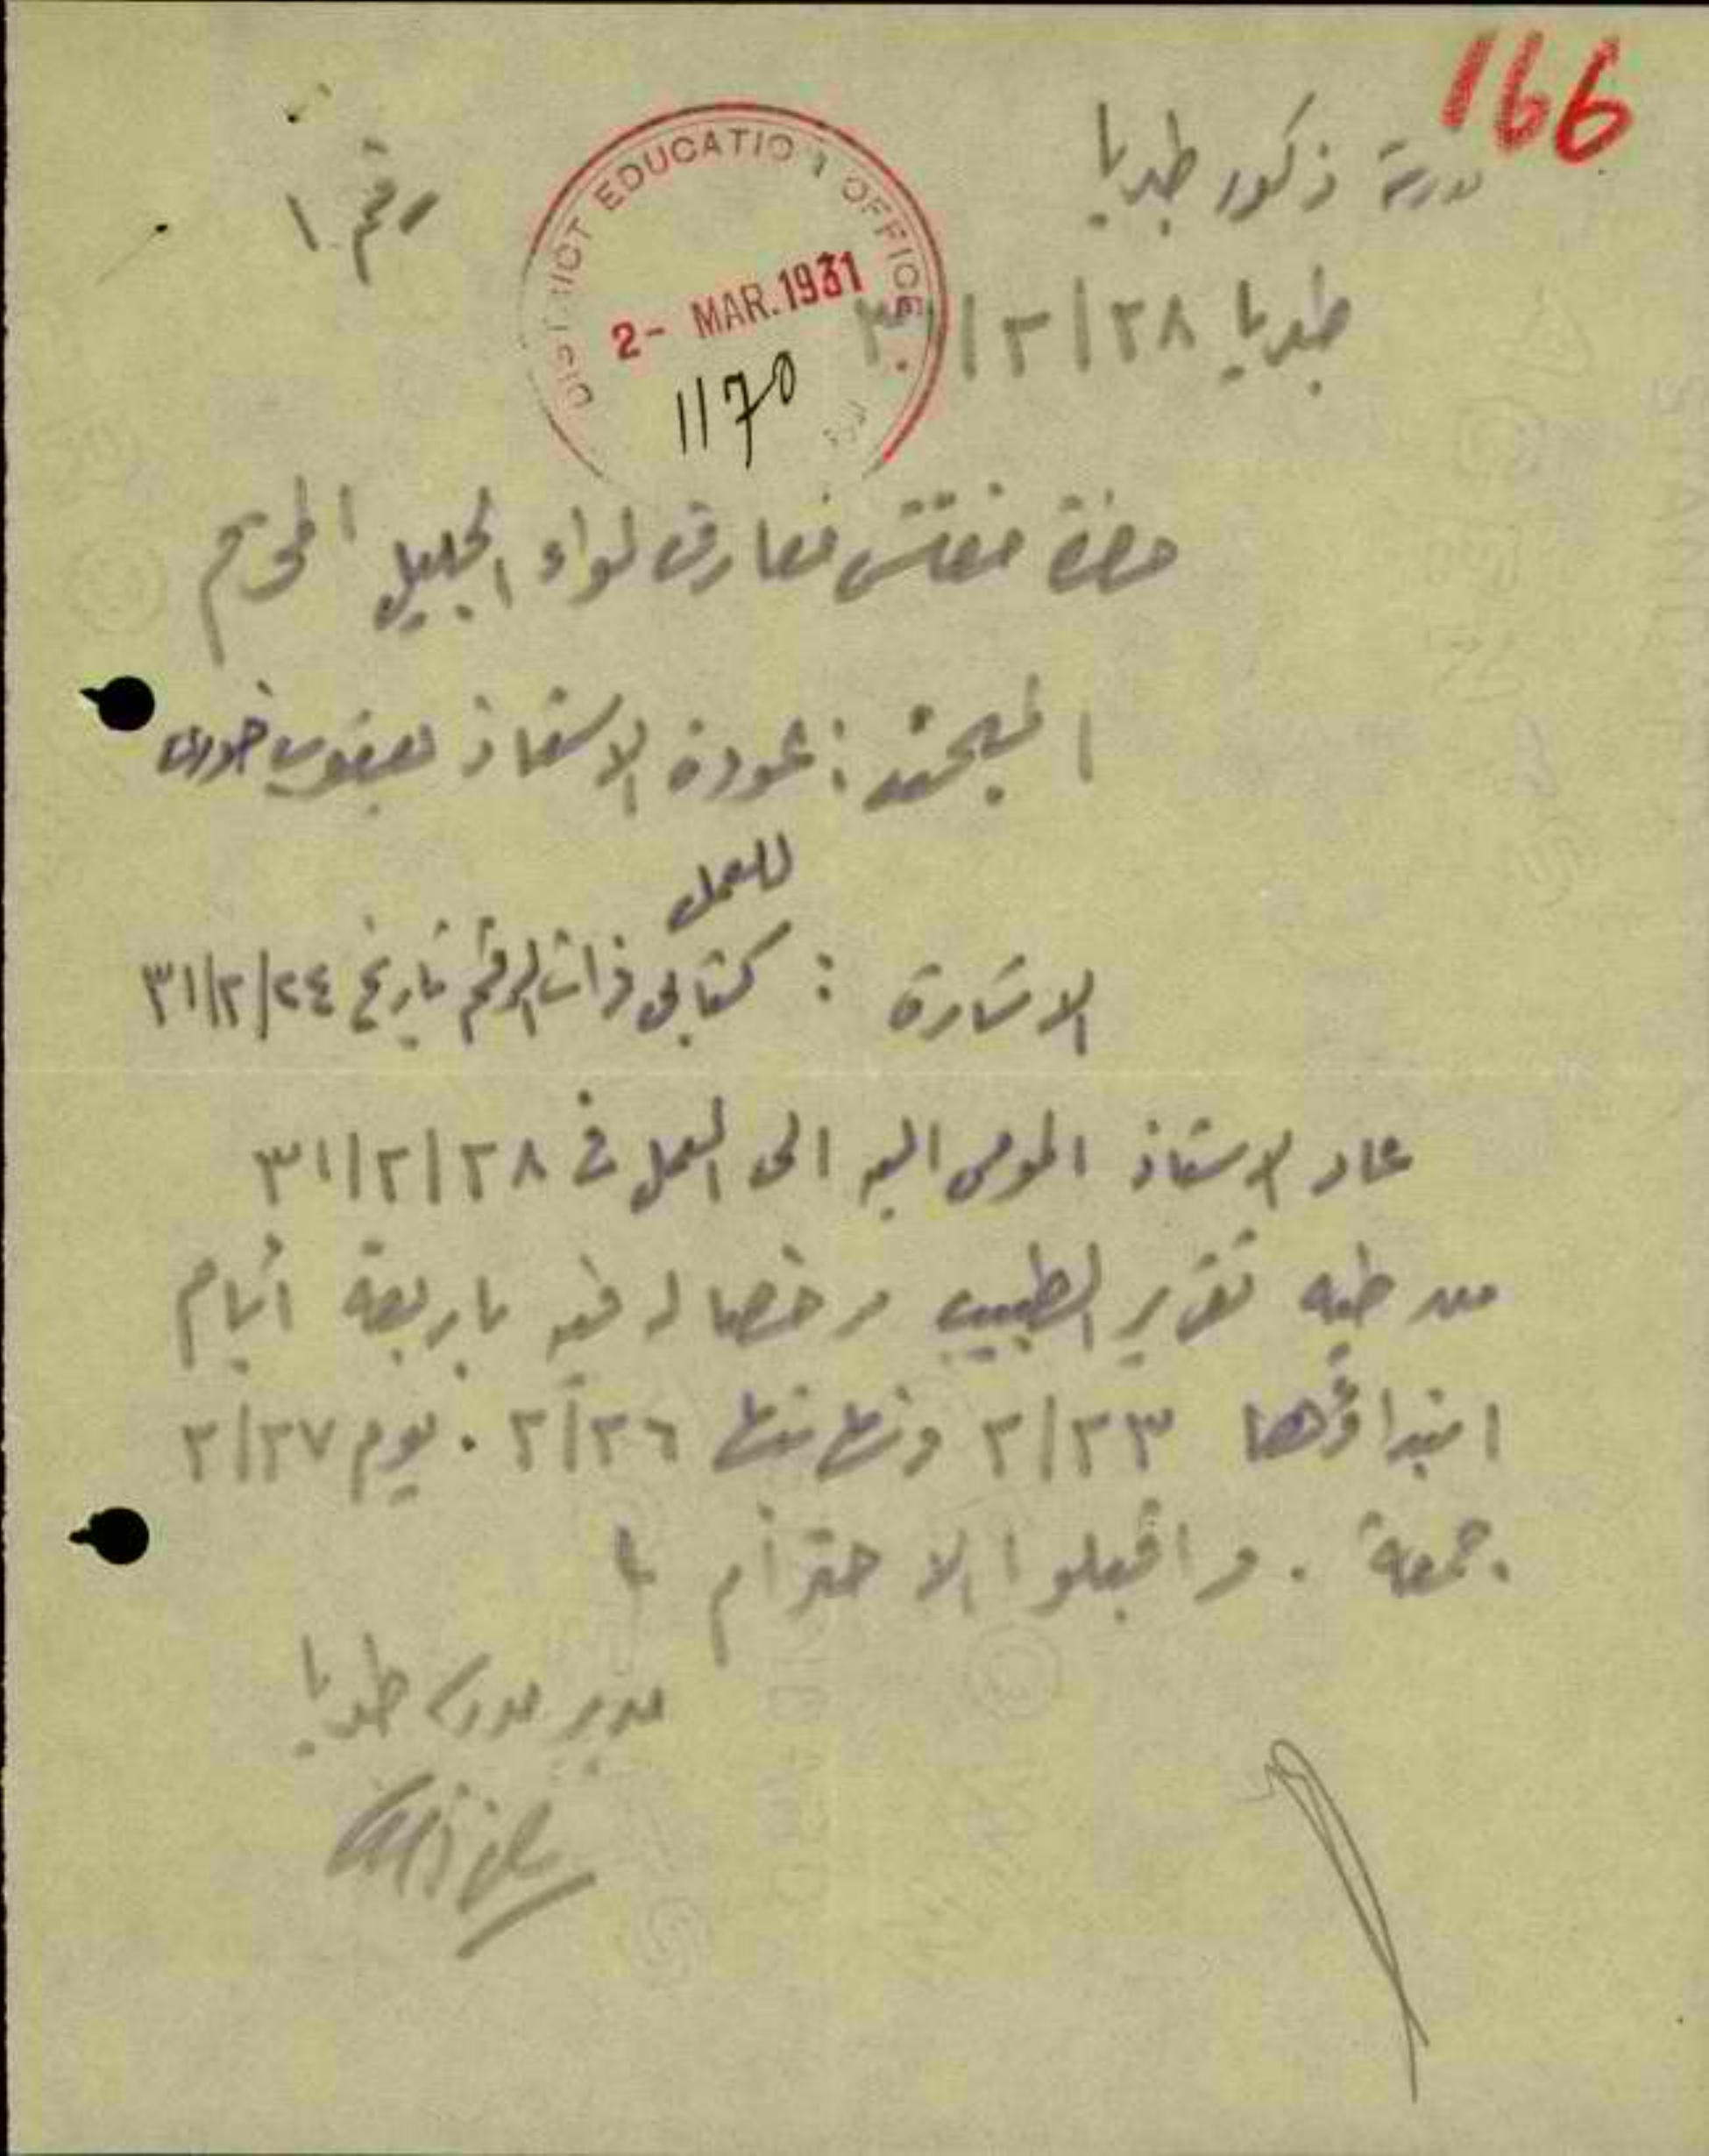 166
مدرسة ذكور طبريا
رقم ١
DISTRICT EDUCATION OFFICE
2- MAR. 1931
1170
طبريا ٢٨/٢/٣١
حضرة مفتش معارف لواء الجليل المحترم
المبحث : عودة الاستاذ يعقوب خوري
للعمل
الاشارة : كتابي ذات الرقم تاريخ ٢٤/٢/٣١
عاد الاستاذ المومى اليه الى العمل في ٢٨/٢/٣١
طيه تقرير الطبيب مرخصا له فيه باربعة ايام
ابتداؤها ٢/٢٣ ونهايتها ٢/٢٦ . يوم ٢/٢٧
جمعة . واقبلوا الاحترام
مدير مدرسة طبريا